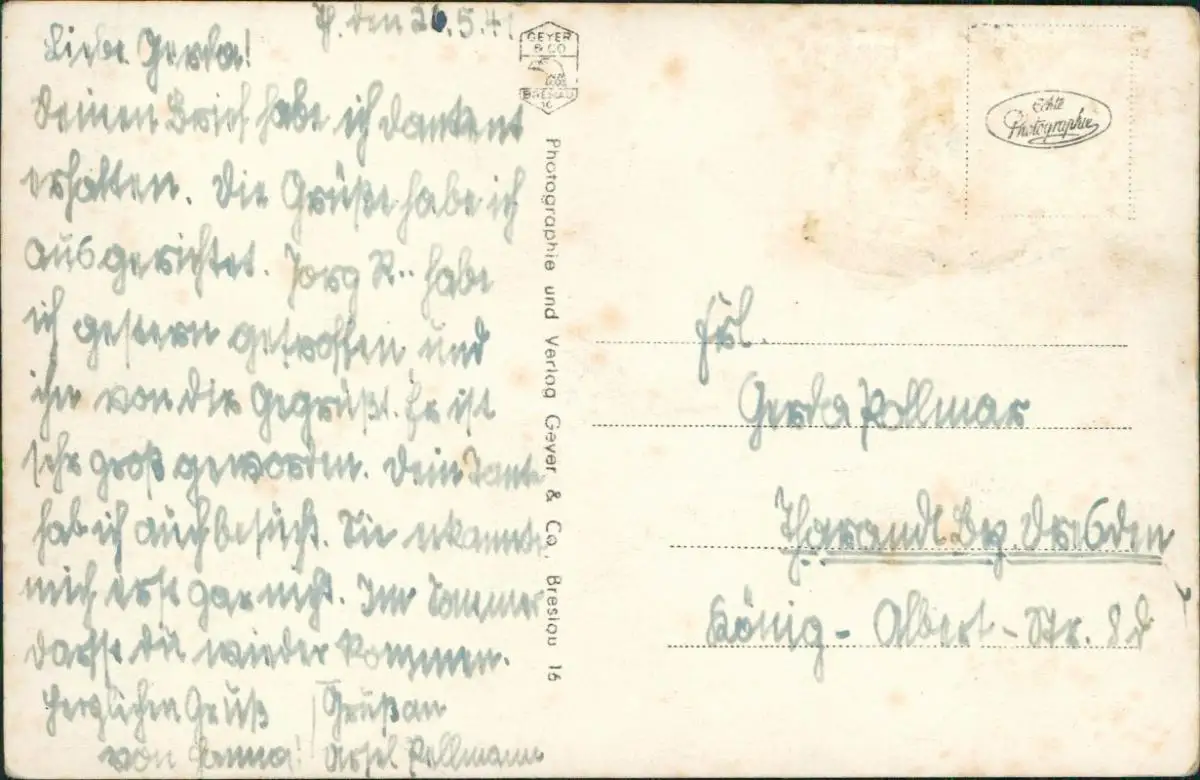 den 26.5.41
Liebe Gerda!
Deinen Brief habe ich dankent
erhalten. Die Grüße habe ich
ausgerichtet. Jorg R.. habe
ich gestern getroffen und
ihn von dir gegrüßt. Er ist
sehr groß geworden. Dein Tante
hab ich auch besucht. Sie erkannte
mich erst gar nicht. Im Sommer
darfst du wieder kommen.
Herzlichen Gruß
von Hanna!
Gruß an
Pollmann
GEYER
& CO
BRESLAU
16
Photographie und Verlag Geyer & Co., Breslau 16
Echte
Photographie
Frl.
Gerda Pollmar
Tharandt Bz. Dresden
König-Albert-Str. 8d